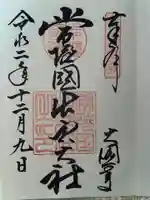 奉拝
大国尊
常陸国出雲大社
令和二年十二月九日